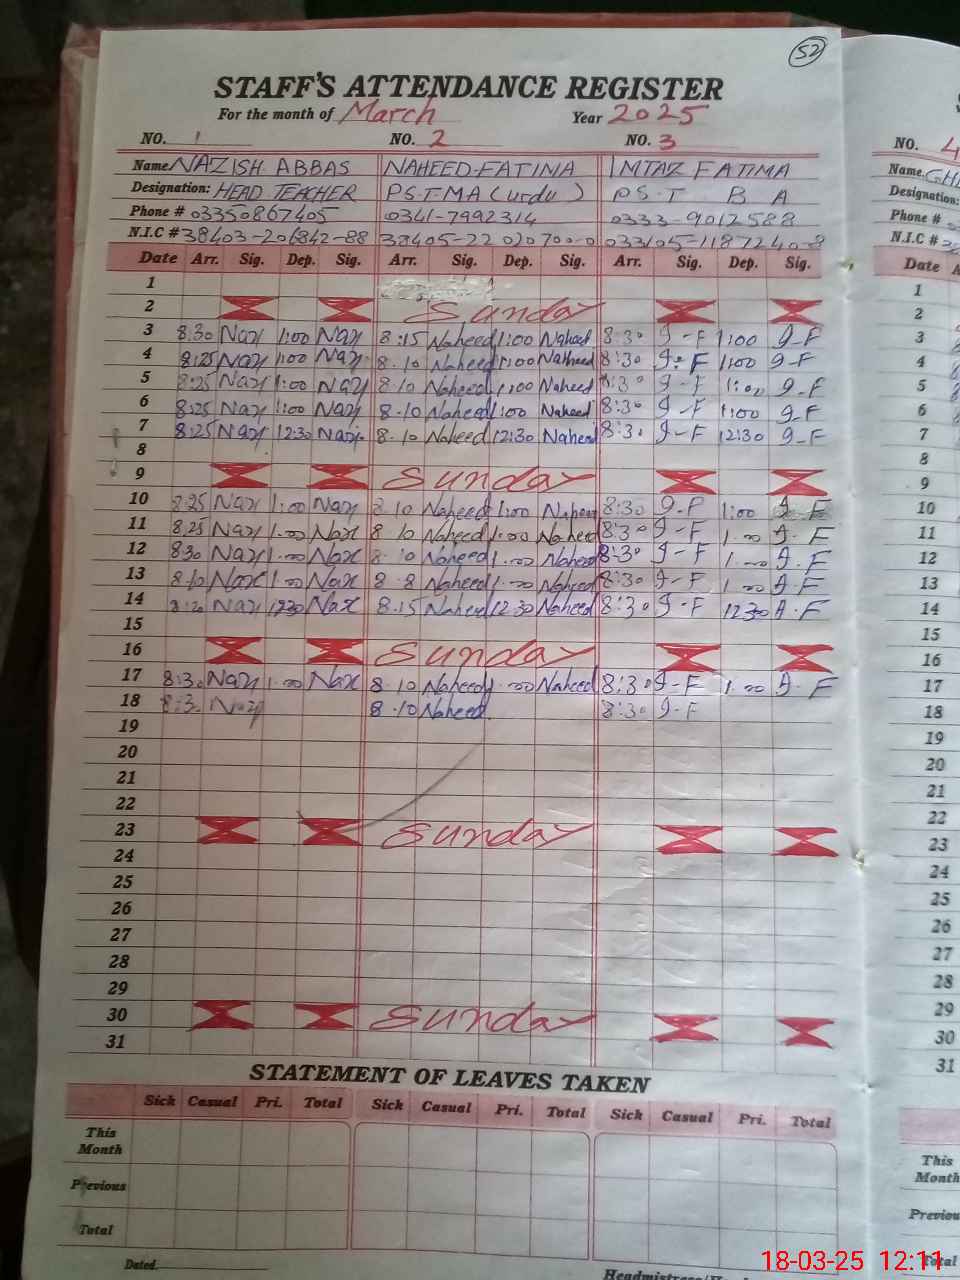 52
STAFF'S ATTENDANCE REGISTER
For the month of March Year 2025
NO. 1 NO. 2 NO. 3 NO. 4
Name NAZISH ABBAS NAHEED FATIMA IMTAZ FATIMA Name
Designation: HEAD TEACHER P.S.T MA (urdu) P.S.T B A Designation
Phone # 03350867405 0341-7992314 0333-9012588 Phone #
N.I.C # 38403-206842-88 N.I.C #
Date Arr. Sig. Dep. Sig. Arr. Sig. Dep. Sig. Arr. Sig. Dep. Sig. Date
1 1
2 Sunday 2
3 8:30 Naz 1:00 Naz 8:15 Naheed 1:00 Naheed 8:30 I-F 1:00 I-F 3
4 8:25 Naz 1:00 Naz 8.10 Naheed 1:00 Naheed 8:30 I-F 1:00 I-F 4
5 8:25 Naz 1:00 Naz 8.10 Naheed 1:00 Naheed 8:30 I-F 1:00 I-F 5
6 8:25 Naz 1:00 Naz 8.10 Naheed 1:00 Naheed 8:30 I-F 1:00 I-F 6
7 8:25 Naz 12:30 Naz 8.10 Naheed 12:30 Naheed 8:30 I-F 12:30 I-F 7
8 8
9 Sunday 9
10 8:25 Naz 1:00 Naz 8.10 Naheed 1:00 Naheed 8:30 I-F 1:00 I-F 10
11 8:25 Naz 1.00 Naz 8 10 Naheed 1:00 Naheed 8:30 I-F 1.00 I-F 11
12 8:30 Naz 1.00 Naz 8.10 Naheed 1.00 Naheed 8:30 I-F 1.00 I-F 12
13 8:10 Naz 1.00 Naz 8.8 Naheed 1.00 Naheed 8:30 I-F 1.00 I-F 13
14 8:20 Naz 12:30 Naz 8.15 Naheed 12 30 Naheed 8:30 I-F 12 30 I-F 14
15 15
16 Sunday 16
17 8:30 Naz 1.00 Naz 8.10 Naheed 1.00 Naheed 8:30 I-F 1.00 I-F 17
18 8:30 Naz 8.10 Naheed 8:30 I-F 18
19 19
20 20
21 21
22 22
23 Sunday 23
24 24
25 25
26 26
27 27
28 28
29 29
30 Sunday 30
31 31
STATEMENT OF LEAVES TAKEN
Sick Casual Pri. Total Sick Casual Pri. Total Sick Casual Pri. Total
This Month This Month
Previous Previous
Total Total
Dated.
18-03-25 12:11